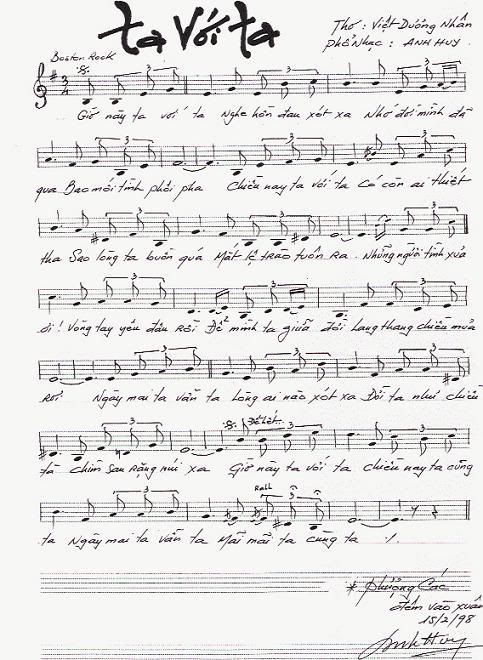 Ta Với Ta
Thơ : Việt Dương Nhân
Phổ Nhạc : ANH HUY
Boston Rock
Giờ này ta với ta Nghe hồn đau xót xa Nhớ đời mình đã
qua Bao mối tình phôi pha Chiều nay ta với ta Có còn ai thiết
tha Sao lòng ta buồn quá Mắt lệ trào tuôn Ra. Những người tình xưa
đi! Vòng tay yêu dấu Rồi Để mình ta giữa đời Lang thang chiều mưa
Rơi Ngày mai ta vẫn ta Lòng ai nào xót xa Đời ta như chiều
Để hết
tà Chim sau Rặng núi xa Giờ này ta với ta chiều nay ta cùng
Rall
ta Ngày mai ta vẫn ta Mãi mãi ta cùng ta
* Phượng Các
đêm vào xuân
15/2/98
Anh Huy